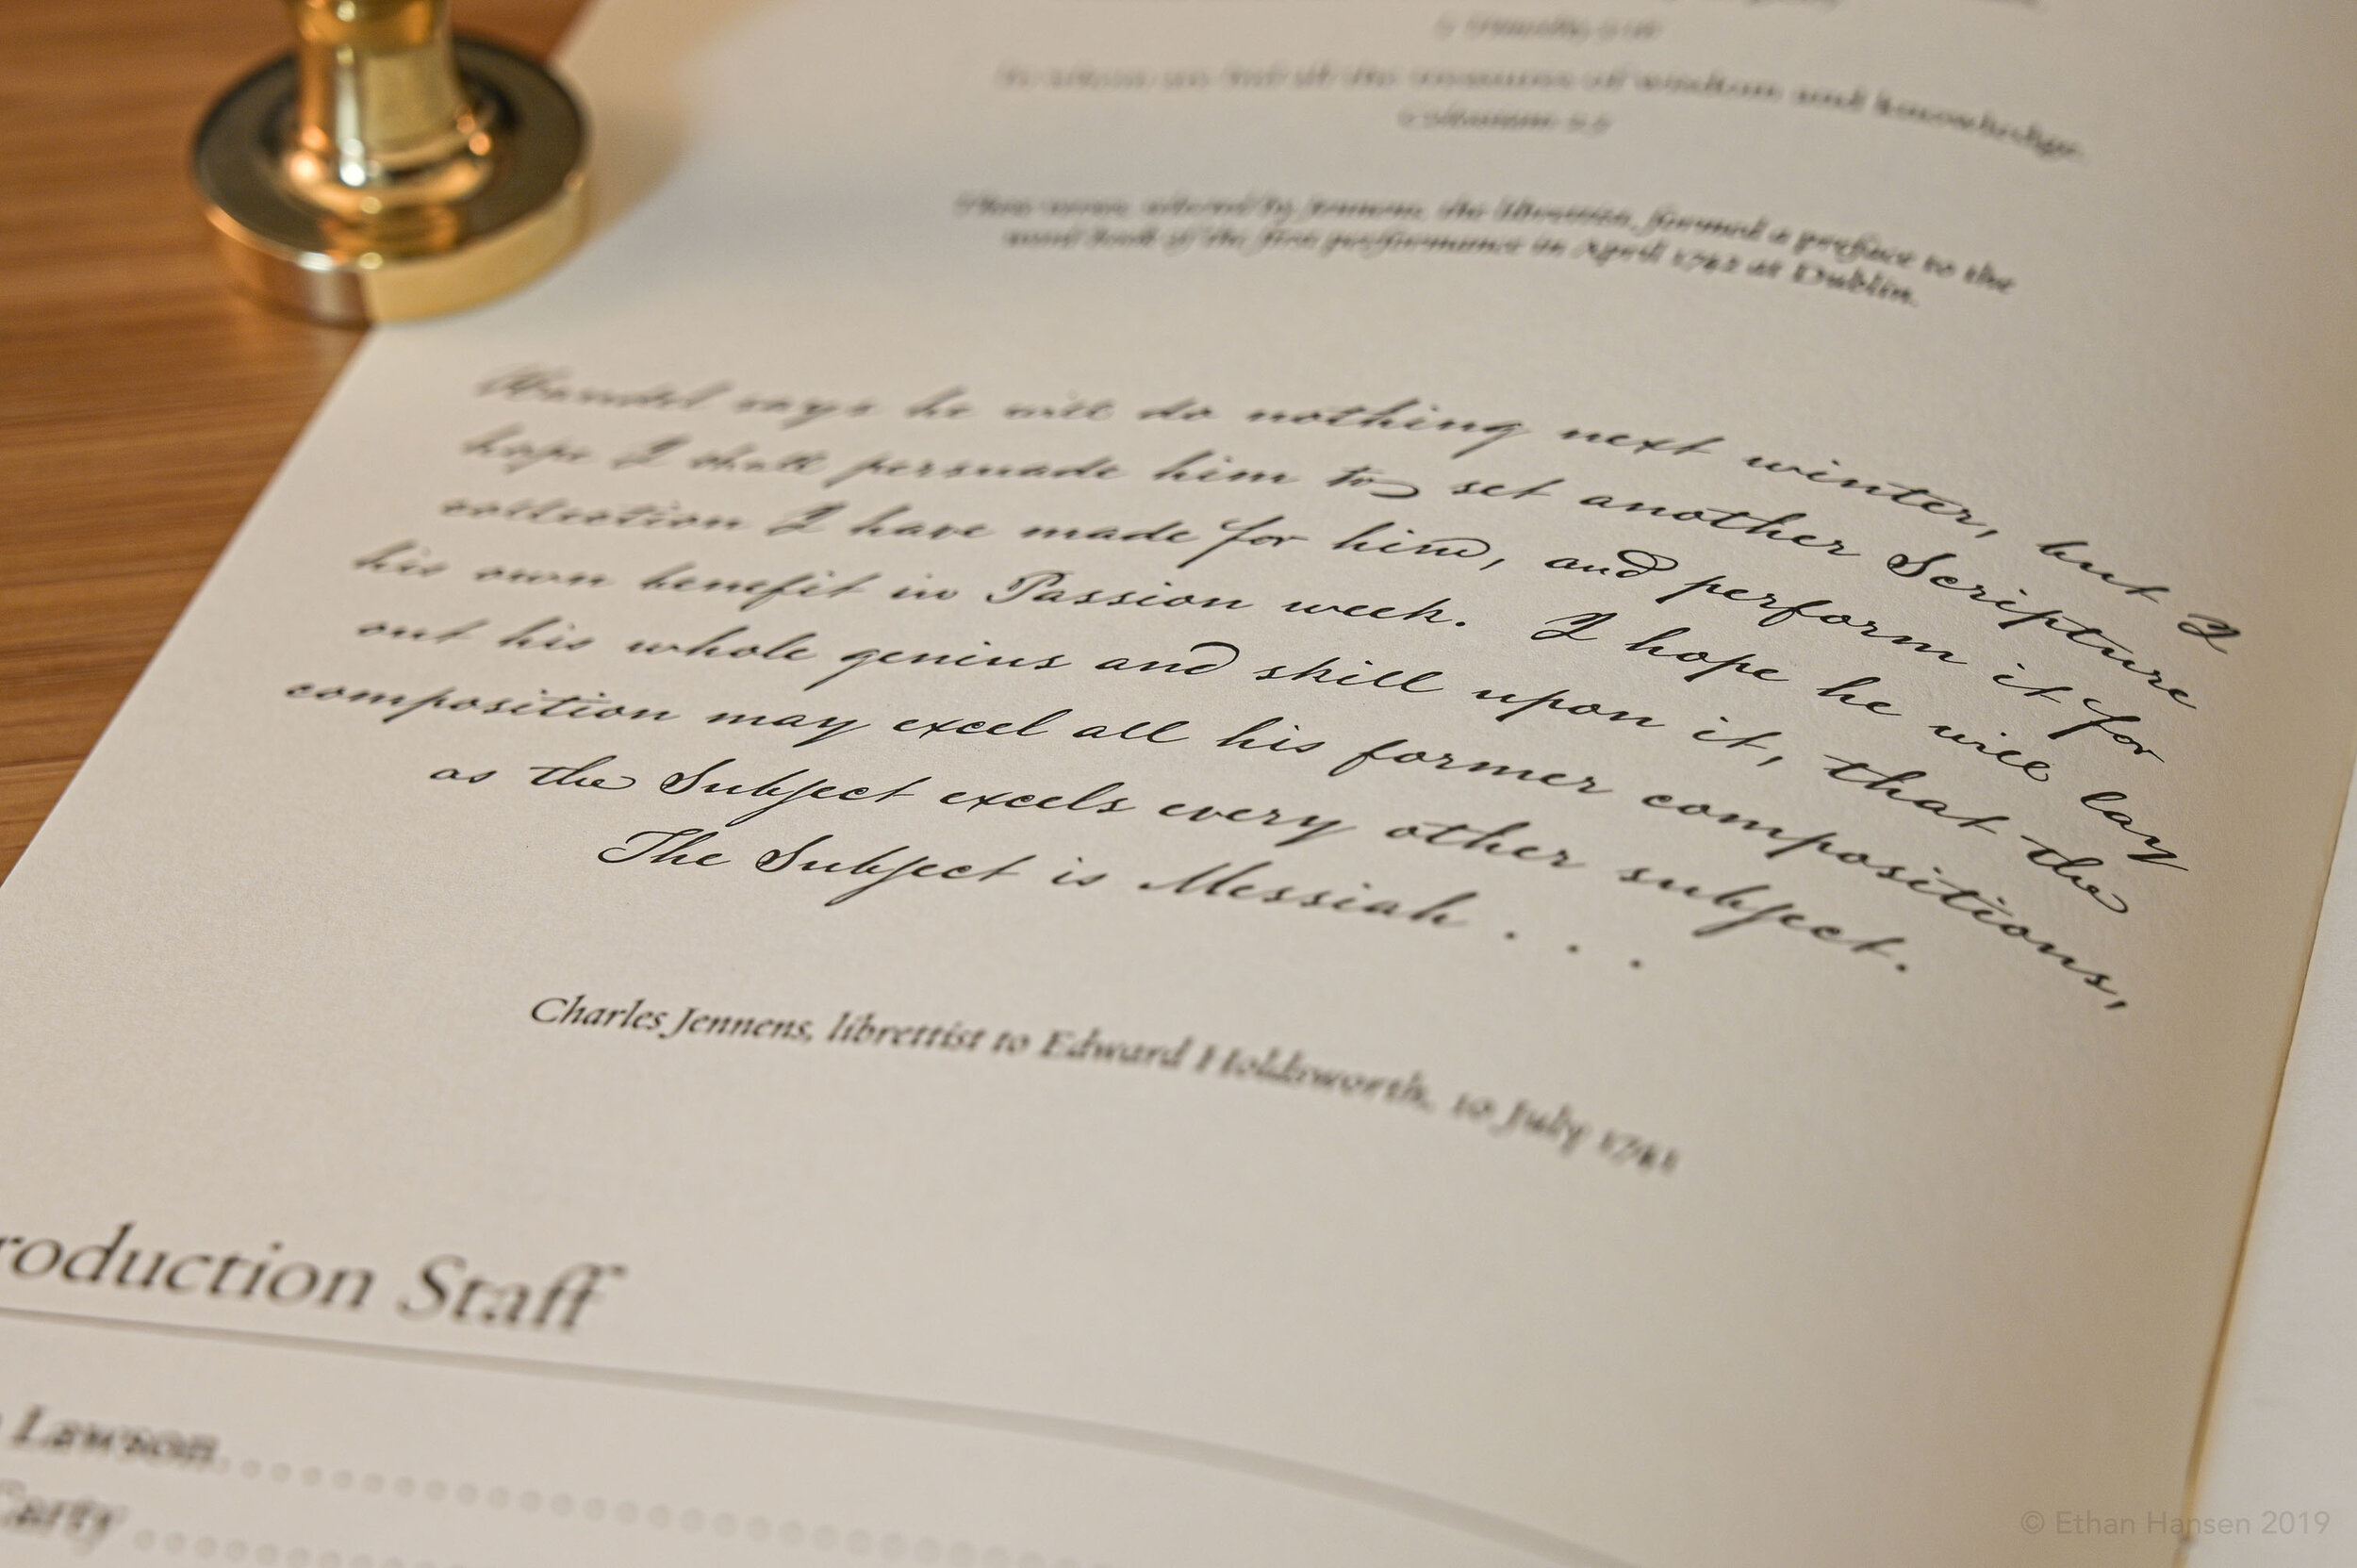 of wisdom and knowledge.
the librettist, formed a preface to the
word book of the first performance in April 1742 at Dublin.
Handel says he will do nothing next winter, but I
hope I shall persuade him to set another Scripture
collection I have made for him, and perform it for
his own benefit in Passion week. I hope he will lay
out his whole genius and skill upon it, that the
composition may excel all his former compositions,
as the Subject excels every other subject.
The Subject is Messiah . . .
Charles Jennens, librettist to Edward Holdsworth, 10 July 1741
roduction Staff
Lawson
Carty
© Ethan Hansen 2019